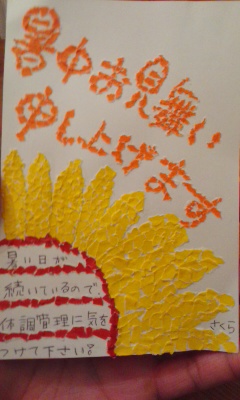 暑中お見舞い
申し上げます
暑い日が
続いているので
体調管理に気を
つけて下さい。
さくら